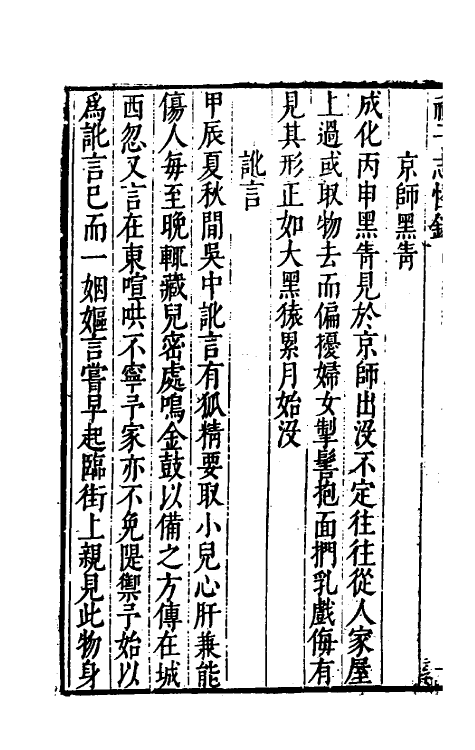 京師黑眚
成化丙申黑眚見於京師出没不定往往從人家屋
上過或取物去而偏擾婦女掣髻抱面捫乳戲侮有
見其形正如大黑猿累月始没
訛言
甲辰夏秋間吳中訛言有狐精要取小兒心肝兼能
傷人每至晚輒藏兒密處鳴金鼓以備之方傳在城
西忽又言在東喧哄不寧予家亦不免隄禦予始以
為訛言巳而一姻嫗言嘗早起臨街上親見此物身